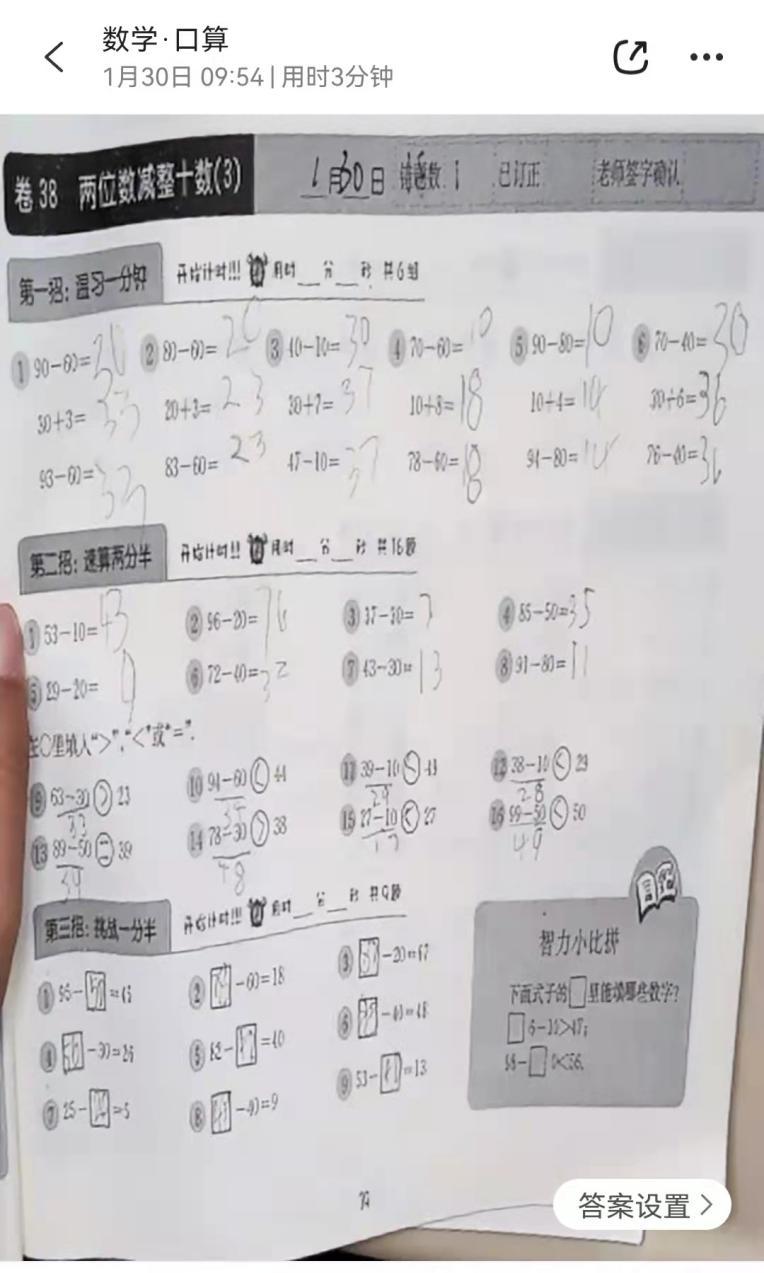 数学·口算
1月30日 09:54 | 用时3分钟
卷 38 两位数减整十数(3) 1月30日 错题数 1 已订正 老师签字确认
第一招: 温习一分钟 开始计时!!! 用时__分__秒 共6组
① 90-60= 20 ② 80-60= 20 ③ 40-10= 30 ④ 70-60= 10 ⑤ 90-80= 10 ⑥ 70-40= 30
30+3= 33 20+3= 23 30+7= 37 10+8= 18 10+4= 14 30+6= 36
93-60= 33 83-60= 23 47-10= 37 78-60= 18 94-80= 14 76-40= 36
第二招: 速算两分半 开始计时!!! 用时__分__秒 共16题
① 53-10= 43 ② 96-20= 76 ③ 37-30= 7 ④ 85-50= 35
⑤ 29-20= 9 ⑥ 72-40= 32 ⑦ 43-30= 13 ⑧ 91-80= 11
在○里填入“>”,“<”或“=”.
⑨ 63-30 > 23 ⑩ 94-60 < 44 ⑪ 39-10 < 43 ⑫ 38-10 < 29
33 34 29 28
⑬ 89-50 = 39 ⑭ 78-30 > 38 ⑮ 27-10 < 27 ⑯ 99-50 < 50
39 48 17 49
第三招: 挑战一分半 开始计时!!! 用时__分__秒 共9题
① 95- 50 =45 ② -60=18 ③ -20=67
④ -30=26 ⑤ 82- =40 ⑥ -40=48
⑦ 25- =5 ⑧ -40=9 ⑨ 53- =13
智力小比拼
下面式子的□里能填哪些数字?
□6-30>47;
□0<56.
答案设置 >